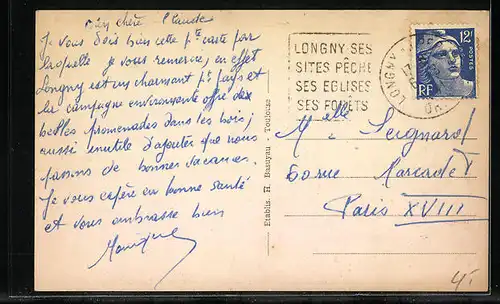 chère Claude
Je vous dois bien cette pte carte par
laquelle je vous remercie, en effet
Longny est un charmant pt pays et
la campagne environnante offre des
belles promenades dans les bois ;
aussi inutile d'ajouter que nous
passons de bonnes vacances.
Je vous espère en bonne santé
et vous embrasse bien
Monique
Etablis. H. Basuyau - Toulouse
LONGNY SES
SITES PÊCHE
SES EGLISES
SES FORÊTS
LONGNY
12F
POSTES
RF
Melle Seignard
60 rue Marcadet
Paris XVIII